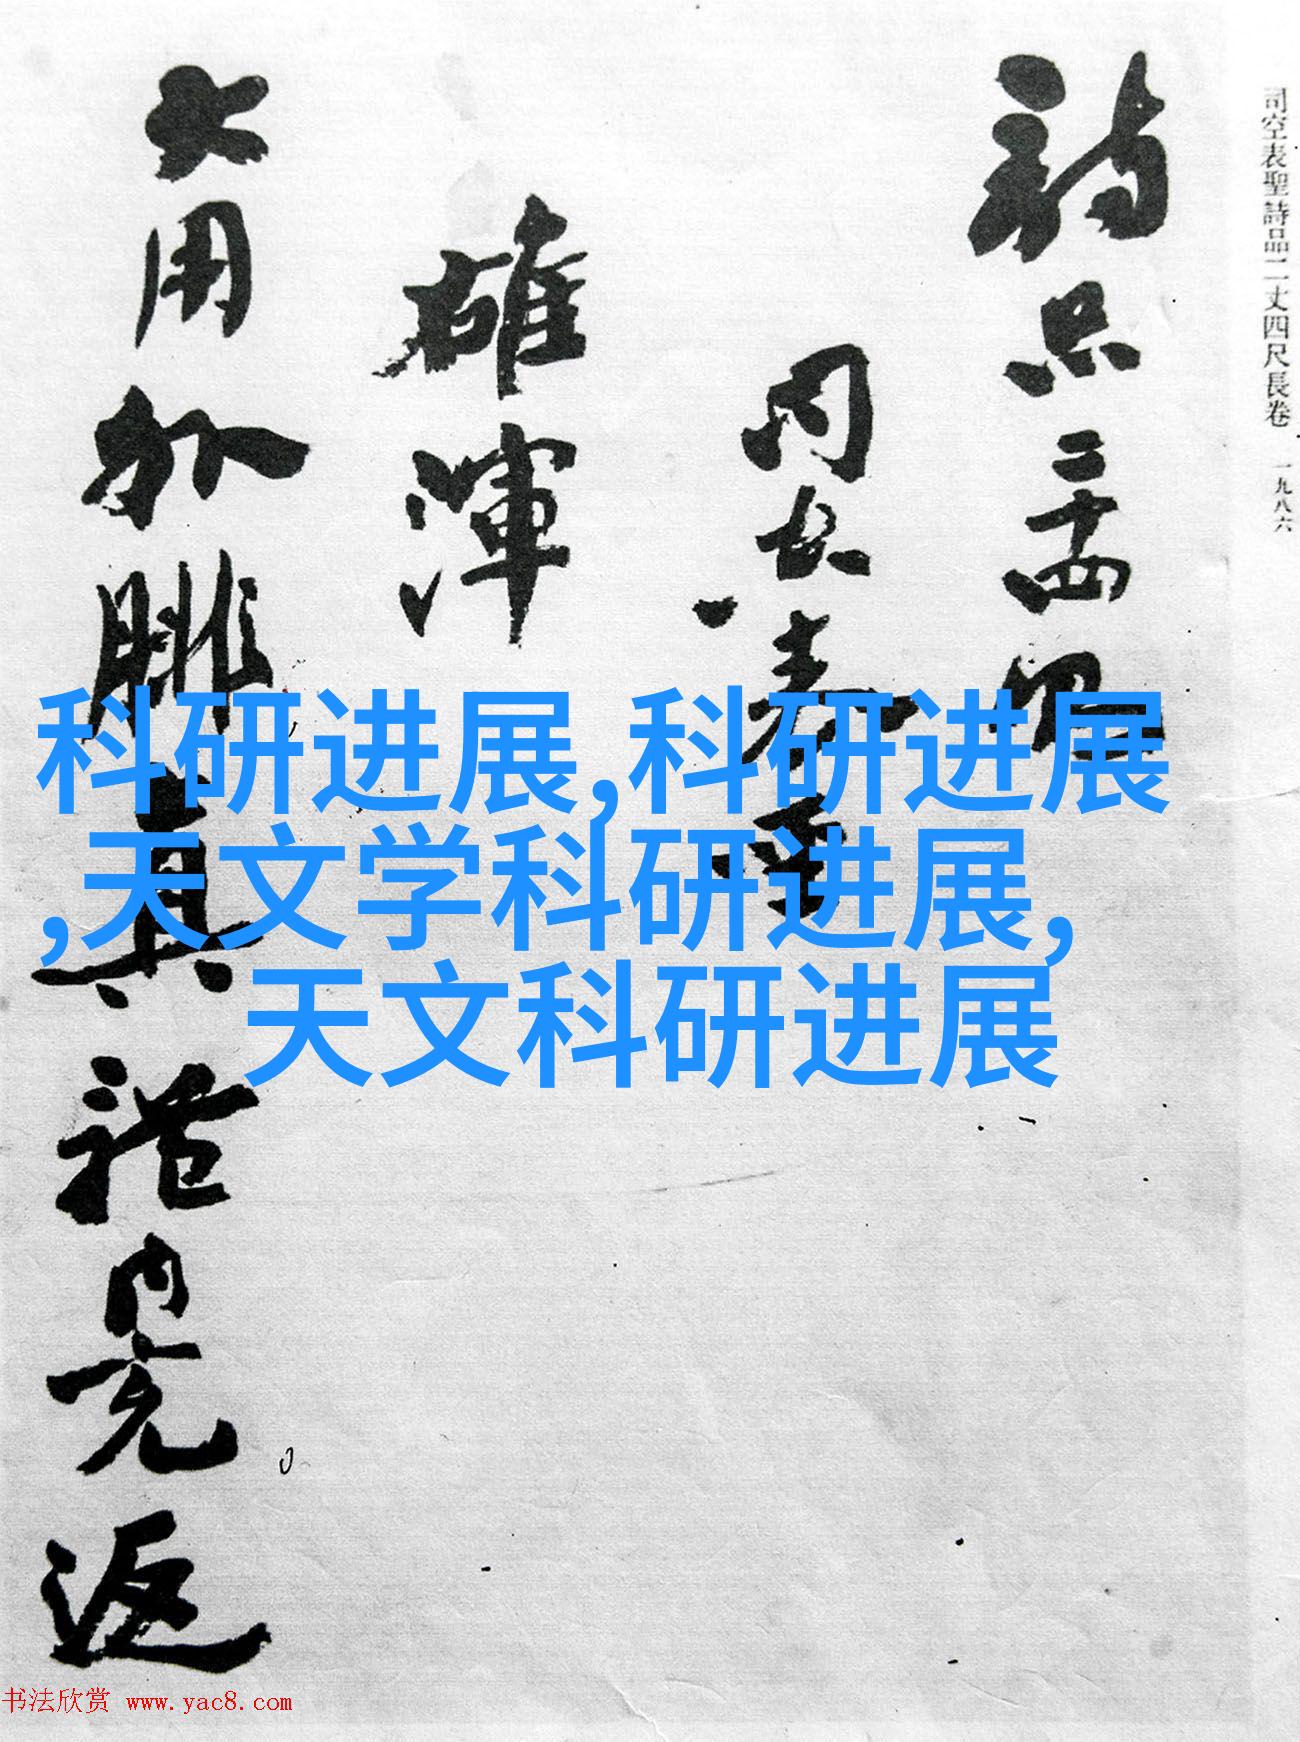 司空表聖詩品二丈四尺長卷 一九八六
詩品二十四
司空表聖
雄渾
大用外腓真體內充返
科研进展,科研进展
,天文学科研进展,
天文科研进展
书法欣赏 www.yac8.com